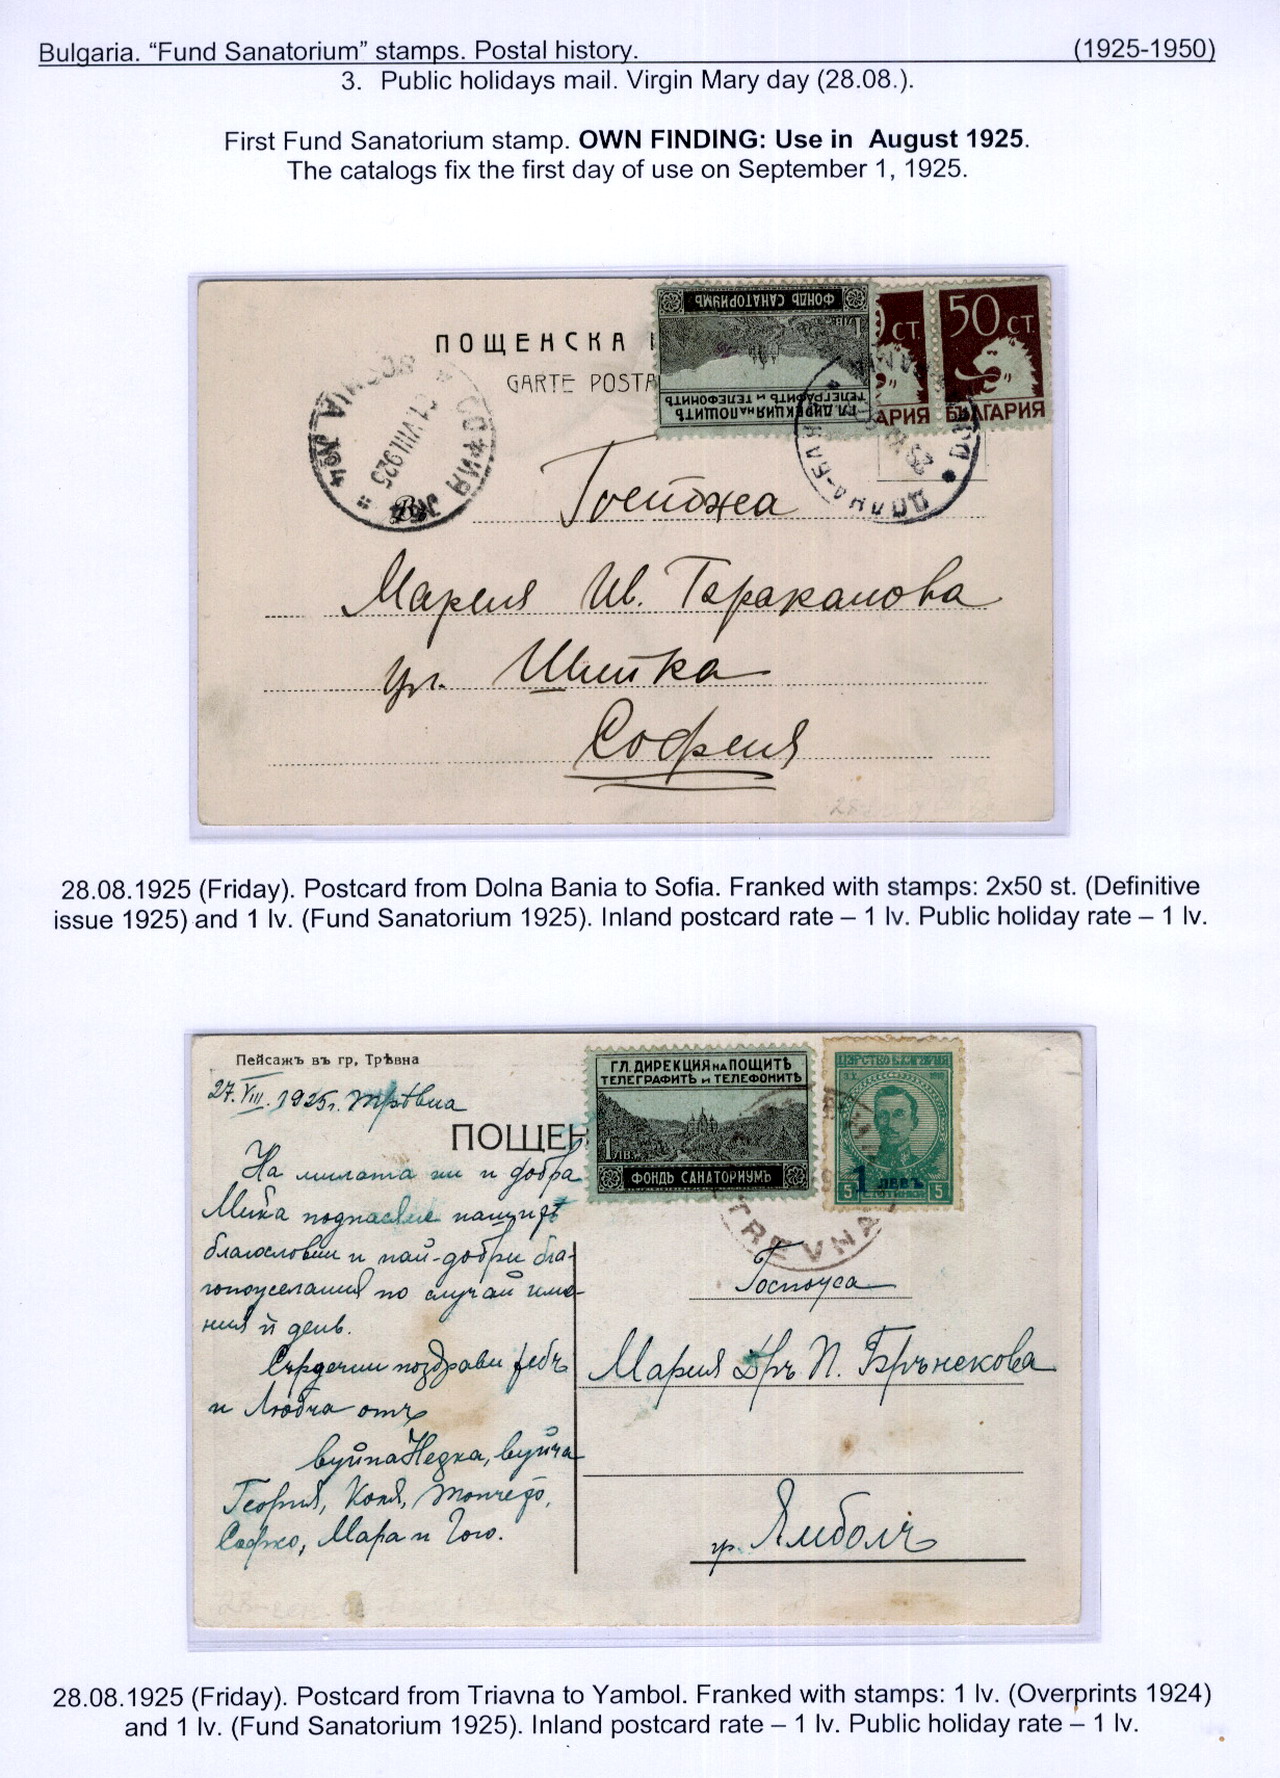 Bulgaria. “Fund Sanatorium” stamps. Postal history. (1925-1950)
3. Public holidays mail. Virgin Mary day (28.08.).
First Fund Sanatorium stamp. OWN FINDING: Use in August 1925.
The catalogs fix the first day of use on September 1, 1925.
ПОЩЕНСКА
CARTE POSTA
ФОНДЪ САНАТОРИУМЪ
1 ЛВ.
ГЛ. ДИРЕКЦИЯ НА ПОЩИТѢ
ТЕЛЕГРАФИТѢ и ТЕЛЕФОНИТѢ
СТ.
АРИЯ
50 СТ.
БЪЛГАРИЯ
СОФИЯ
VIII.925
ДОЛНА-БАН
Госпожа
Мария Ив. Таракапова
ул. Шипка
София
28.08.1925 (Friday). Postcard from Dolna Bania to Sofia. Franked with stamps: 2x50 st. (Definitive
issue 1925) and 1 lv. (Fund Sanatorium 1925). Inland postcard rate – 1 lv. Public holiday rate – 1 lv.
Пейсажъ въ гр. Трѣвна
27.VIII.1925г. Трѣвна
ПОЩЕН
На милата ни и добра
Мика поднасяме нашитѣ
благословии и най-добри бла-
гопожелания по случай име-
ния ѝ день.
Сърдечни поздрави тебъ
и Любча отъ
вуйна Недка, вуйча
Георгия, Коля, Тончето,
Сафко, Мара и Гого.
ГЛ. ДИРЕКЦИЯ НА ПОЩИТѢ
ТЕЛЕГРАФИТѢ и ТЕЛЕФОНИТѢ
1 ЛВ.
ФОНДЪ САНАТОРИУМЪ
ЦАРСТВО БЪЛГАРИЯ
1 ЛЕВЪ
5 5
TREVNA
Госпожа
Мария Дръ П. Брънекова
гр. Ямболъ
28.08.1925 (Friday). Postcard from Triavna to Yambol. Franked with stamps: 1 lv. (Overprints 1924)
and 1 lv. (Fund Sanatorium 1925). Inland postcard rate – 1 lv. Public holiday rate – 1 lv.